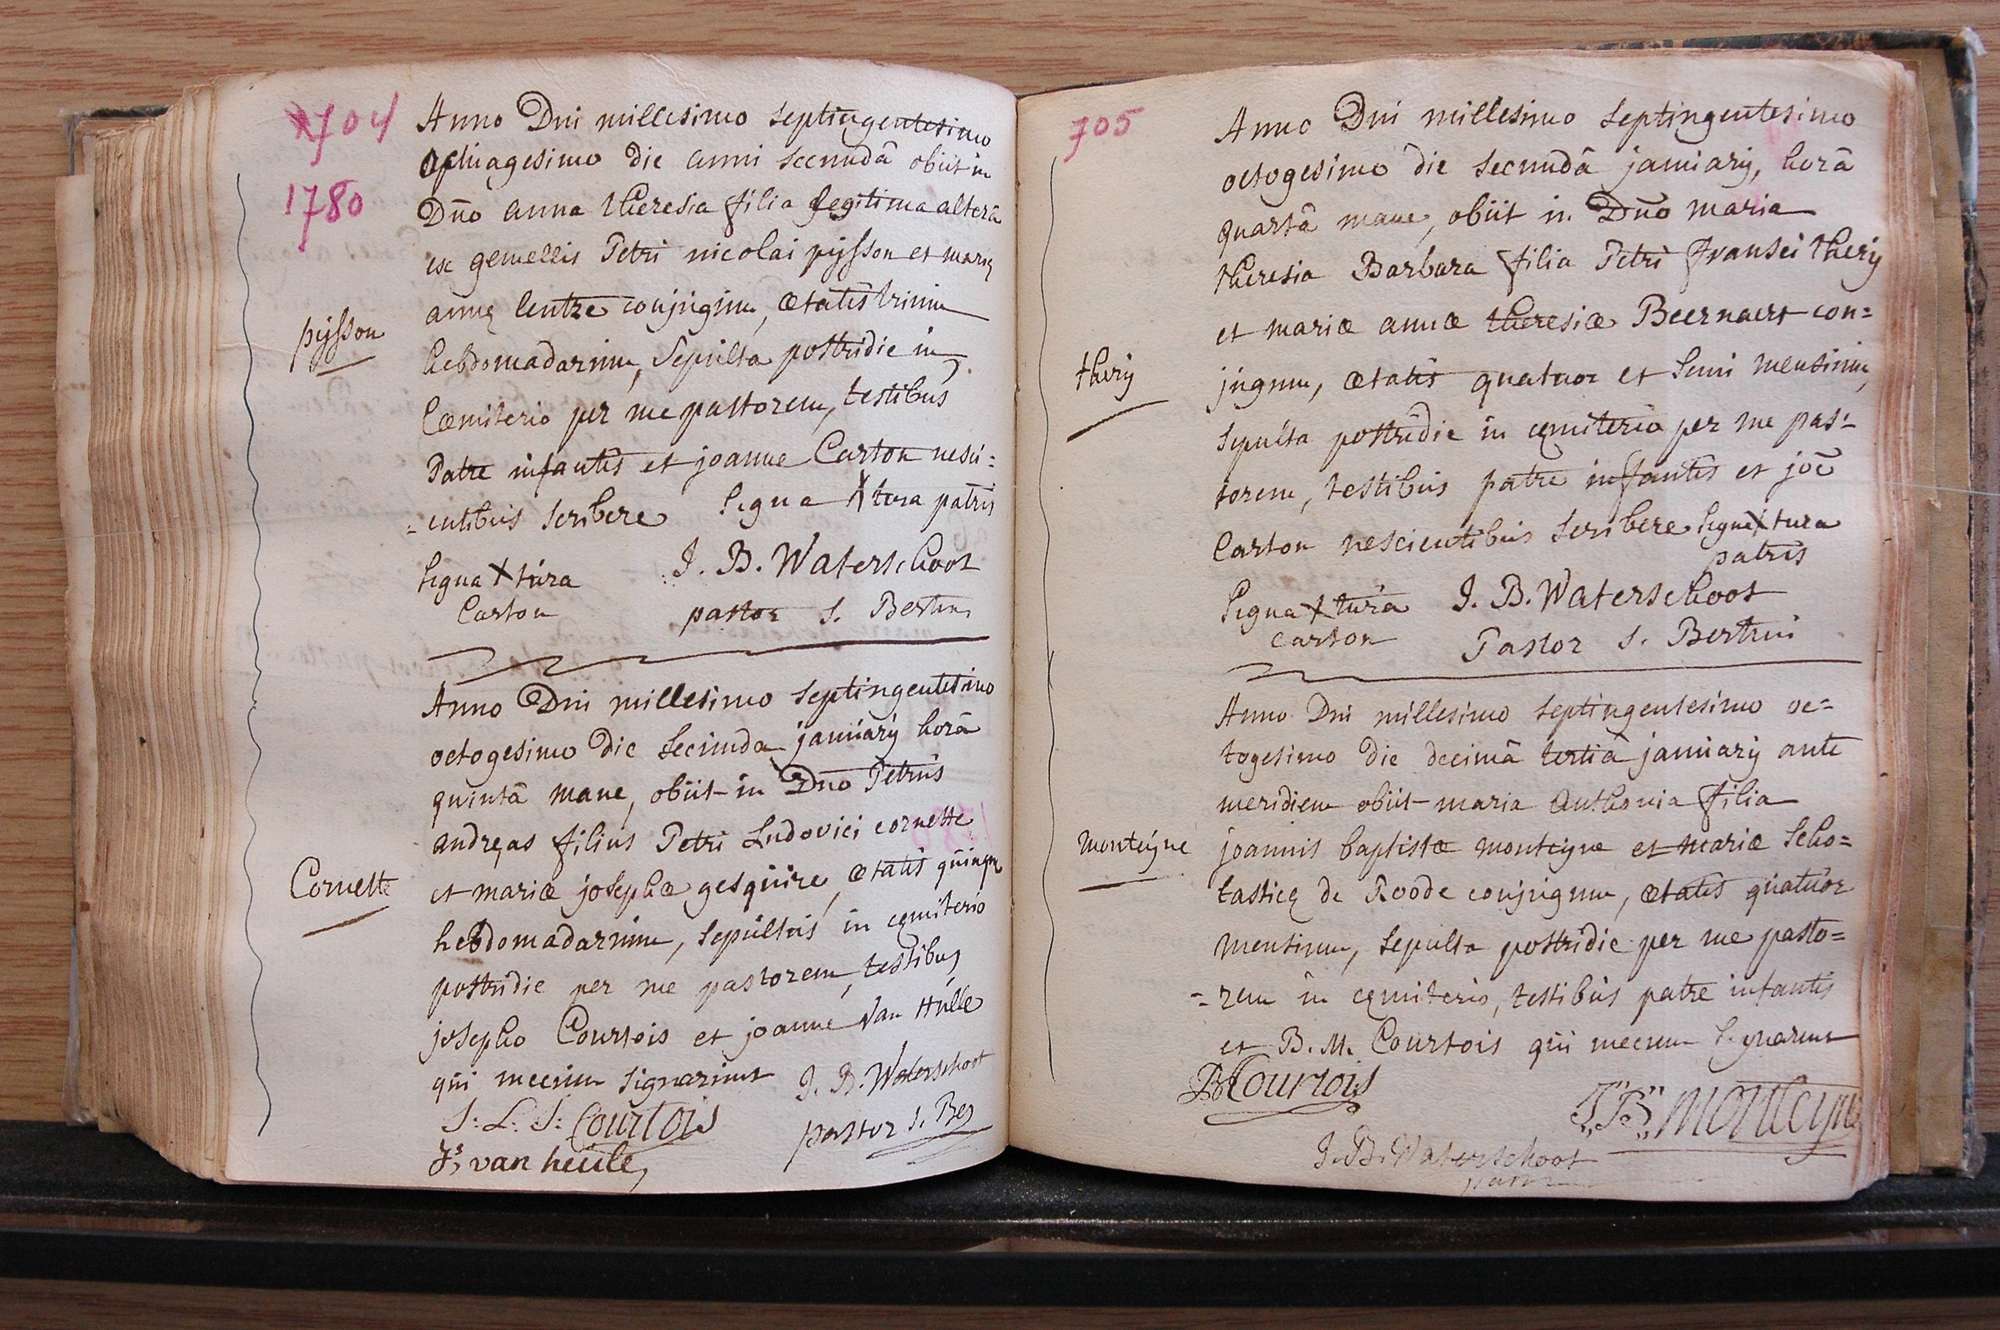 704
1780
Anno Dni millesimo septingentesimo
octuagesimo die anni secundâ obiit in
Dño anna theresia filia legitima alterâ
ex gemellis Petri nicolai pysson et marię
annę lentre conjugum, ætatis trium
pysson
hebdomadarum, sepulta postridie in
Cœmiterio per me pastorem, testibus
Patre infantis et joanne Carton nesci=
=entibus scribere Signa X tura patris
Signa X tura
Carton
J. B. Waterschoot
pastor S. Bertini
Anno Dni millesimo septingentesimo
octogesimo die secunda januarij horâ
quintâ mane, obiit in Dño Petrus
andręas filius Petri Ludovici cornette
Cornette
et mariæ josephæ gesquire, ætatis quinque
hebdomadarum, sepultus in cęmiterio
postridie per me pastorem, testibus
josepho Courtois et joanne Van Hulle
qui mecum signarunt
J. B. Waterschoot
pastor S. Ber
S: L: J: Courtois
Js van heule,
705
Anno Dni millesimo septingentesimo
octogesimo die secundâ januarij, horâ
quartâ mane, obiit in Dño maria
theresia Barbara filia Petri fransci thery
et mariæ annæ theresiæ Beernaert con=
thery
jugum, ætatis quatuor et semi mensium,
sepulta postridie in cęmiterio per me pas=
torem, testibus patre infantis et joē
Carton nescientibus scribere Signa X tura
patris
Signa X tura
carton
J. B. Waterschoot
Pastor S. Bertini
Anno Dni millesimo septingentesimo oc=
togesimo die decimâ tertiâ januarij ante
meridiem obiit maria Anthonia filia
monteÿne
joannis baptistæ monteyne et mariæ scho=
lasticę de Roode conjugum, ætatis quatuor
mensium, sepulta postridie per me pasto=
=rem in cęmiterio, testibus patre infantis
et B. M. Courtois qui mecum signarunt
BCourtois
J: B: monteyne
J. B. Waterschoot
pastor